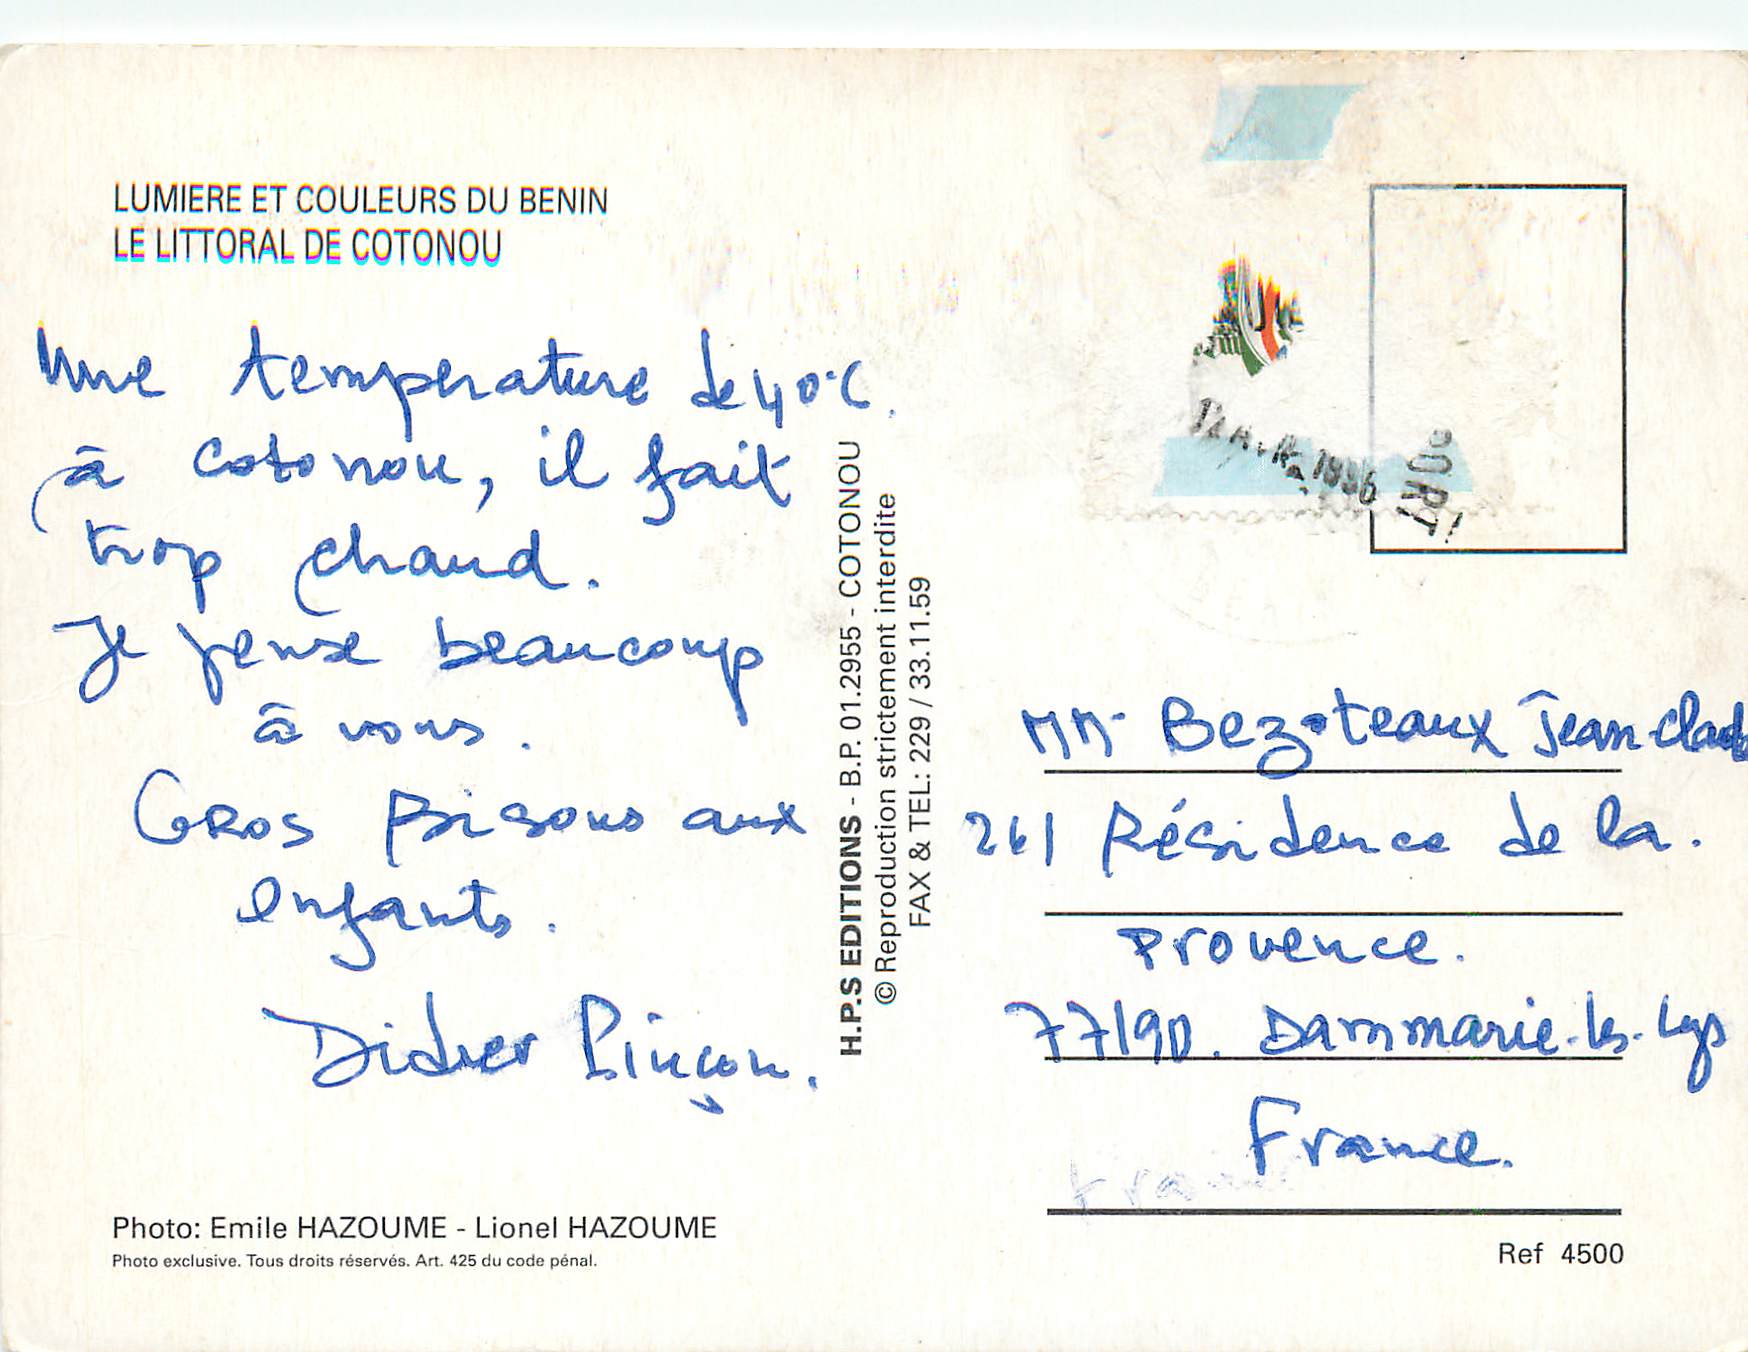 LUMIERE ET COULEURS DU BENIN
LE LITTORAL DE COTONOU
Une temperature de 40°C.
à cotonou, il fait
trop chaud.
Je pense beaucoup
à vous.
Gros Bisous aux
enfants.
Didier Pinçon.
Photo: Emile HAZOUME - Lionel HAZOUME
Photo exclusive. Tous droits réservés. Art. 425 du code pénal.
H.P.S EDITIONS - B.P. 01.2955 - COTONOU
© Reproduction strictement interdite
FAX & TEL: 229 / 33.11.59
1996
PORT
MM Bezoteaux Jean-Claude
261 Résidence de la.
Provence.
77190. Dammarie-les-Lys
France.
Ref 4500